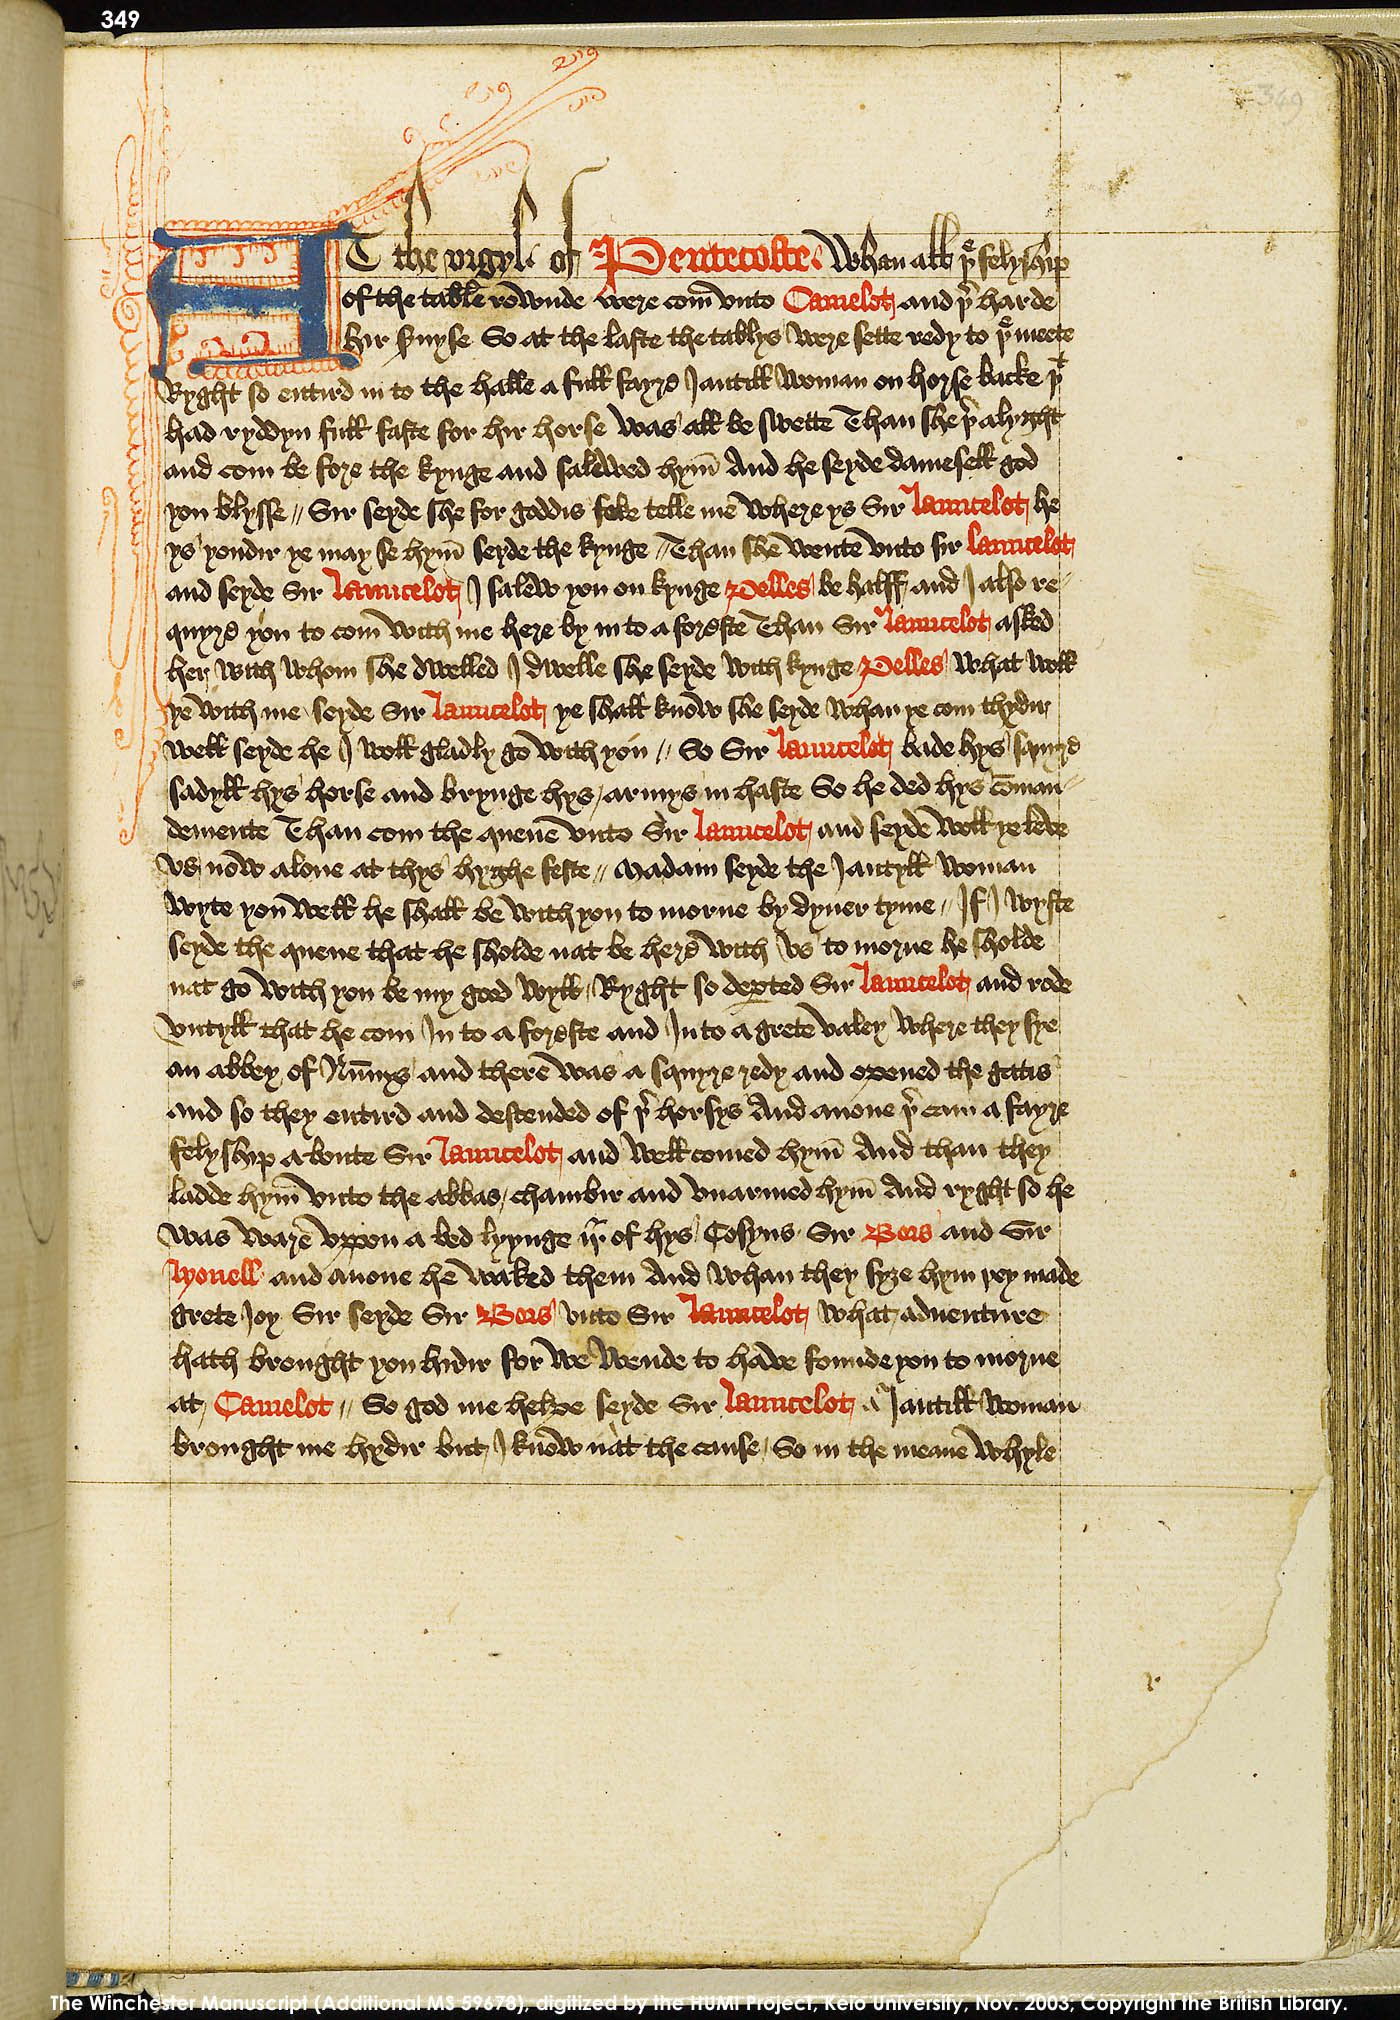 349
349
AT the vigyl of Pentecoste whan all þe felyship
of the table rownde were com vnto Camelot and þer harde
hir seruyse So at the laste the tablys were sette redy to þe meete
Ryght so entird in to the halle a full fayre Jantill woman on horse backe þt
had ryddyn full faste for hir horse was all be swette Than she þer alyght
and com be fore the kynge and salewed hym And he seyde damesell god
you blysse // Sir seyde she for goddis sake telle me where ys Sir launcelot he
ys yondir ye may se hym seyde the kynge // Than she wente vnto sir launcelot
and seyde Sir launcelot I salew you on kynge Pelles be halff and I also re-
quyre you to com with me here by in to a foreste Than Sir launcelot asked
her with whom she dwelled I dwelle she seyde with kynge Pelles what woll
ye with me seyde Sir launcelot ye shall know she seyde whan ye com thydir
well seyde he I woll gladly go with you // So Sir launcelot bade hys squyre
sadyll hys horse and brynge hys armys in haste So he ded hys coman-
demente Than com the quene vnto Sir launcelot and seyde woll ye leve
vs now alone at thys hyghe feste // Madam seyde the Jantyll woman
wyte you well he shall be with you to morne by dyner tyme // If I wyste
seyde the quene that he sholde nat be here with vs to morne he sholde
nat go with you be my good wyll Ryght so departed Sir launcelot and rode
vntyll that he com In to a foreste and In to a grete valey where they sye
an abbey of Nunnys and there was a squyre redy and opened the gatis
and so they entird and descended of þer horsys And anone þer cam a fayre
felyship aboute Sir launcelot and well comed hym And than they
ladde hym vnto the abbas chambir and vnarmed hym And ryght so he
was ware vppon a bed lyynge ij of hys Cosyns Sir Bors and Sir
lyonell and anone he waked them And whan they syze hym þey made
grete Joy Sir seyde Sir Bors vnto Sir launcelot what adventure
hath brought you hidir for we wende to have founde you to morne
at Camelot // So god me helpe seyde Sir launcelot a Jantill woman
brought me hydir but I know nat the cause So in the meane whyle
The Winchester Manuscript (Additional MS 59678), digitized by the HUMI Project, Keio University, Nov. 2003, Copyright the British Library.